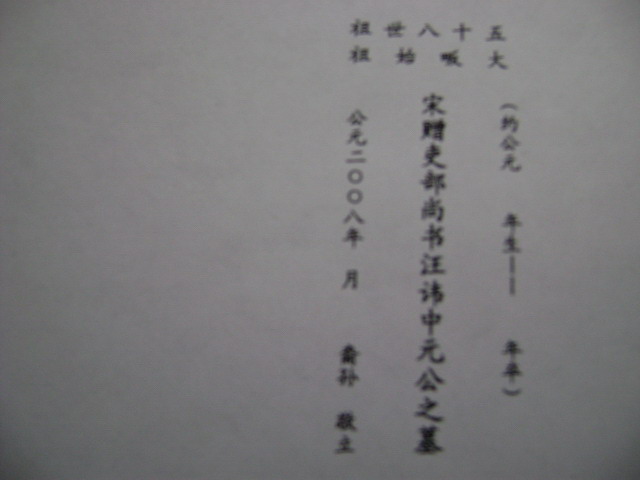 五十八世祖
大畈始祖
（约公元　年生——　年卒）
宋赠吏部尚书汪讳中元公之墓
公元二〇〇八年　月　裔孙　敬立